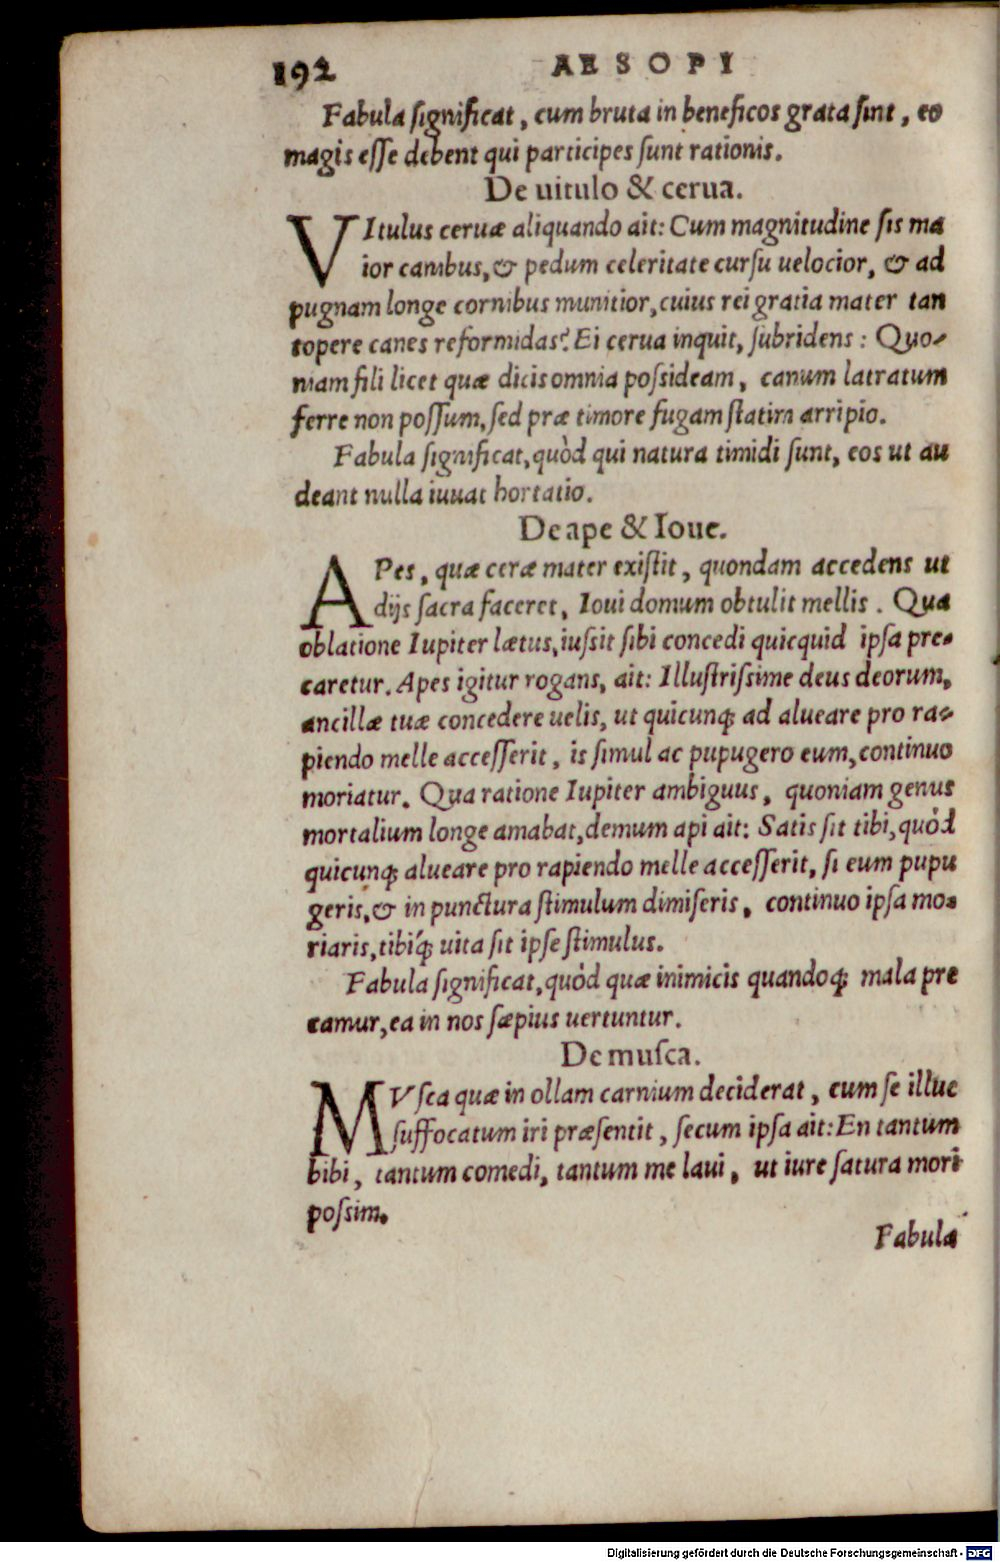 192 AESOPI
Fabula ſignificat, cum bruta in beneficos grata ſint, eo
magis eſſe debent qui participes ſunt rationis.
De uitulo & cerua.
VItulus ceruæ aliquando ait: Cum magnitudine ſis ma
ior canibus, & pedum celeritate curſu uelocior, & ad
pugnam longe cornibus munitior, cuius rei gratia mater tan
topere canes reformidas? Ei cerua inquit, ſubridens: Quo-
niam fili licet quæ dicis omnia poſsideam, canum latratum
ferre non poſſum, ſed præ timore fugam ſtatim arripio.
Fabula ſignificat, quòd qui natura timidi ſunt, eos ut au
deant nulla iuuat hortatio.
De ape & Ioue.
APes, quæ ceræ mater exiſtit, quondam accedens ut
dijs ſacra faceret, Ioui domum obtulit mellis. Qua
oblatione Iupiter lætus, iuſsit ſibi concedi quicquid ipſa pre-
caretur. Apes igitur rogans, ait: Illuſtriſsime deus deorum,
ancillæ tuæ concedere uelis, ut quicunq; ad alueare pro ra-
piendo melle acceſſerit, is ſimul ac pupugero eum, continuo
moriatur. Qua ratione Iupiter ambiguus, quoniam genus
mortalium longe amabat, demum api ait: Satis ſit tibi, quòd
quicunq; alueare pro rapiendo melle acceſſerit, ſi eum pupu
geris, & in punctura ſtimulum dimiſeris, continuo ipſa mo-
riaris, tibiq́; uita ſit ipſe ſtimulus.
Fabula ſignificat, quòd quæ inimicis quandoq; mala pre
camur, ea in nos ſæpius uertuntur.
De muſca.
MVſca quæ in ollam carnium deciderat, cum ſe illuc
ſuffocatum iri præſentit, ſecum ipſa ait: En tantum
bibi, tantum comedi, tantum me laui, ut iure ſatura mori
poſsim.
Fabula
Digitalisierung gefördert durch die Deutsche Forschungsgemeinschaft - DFG